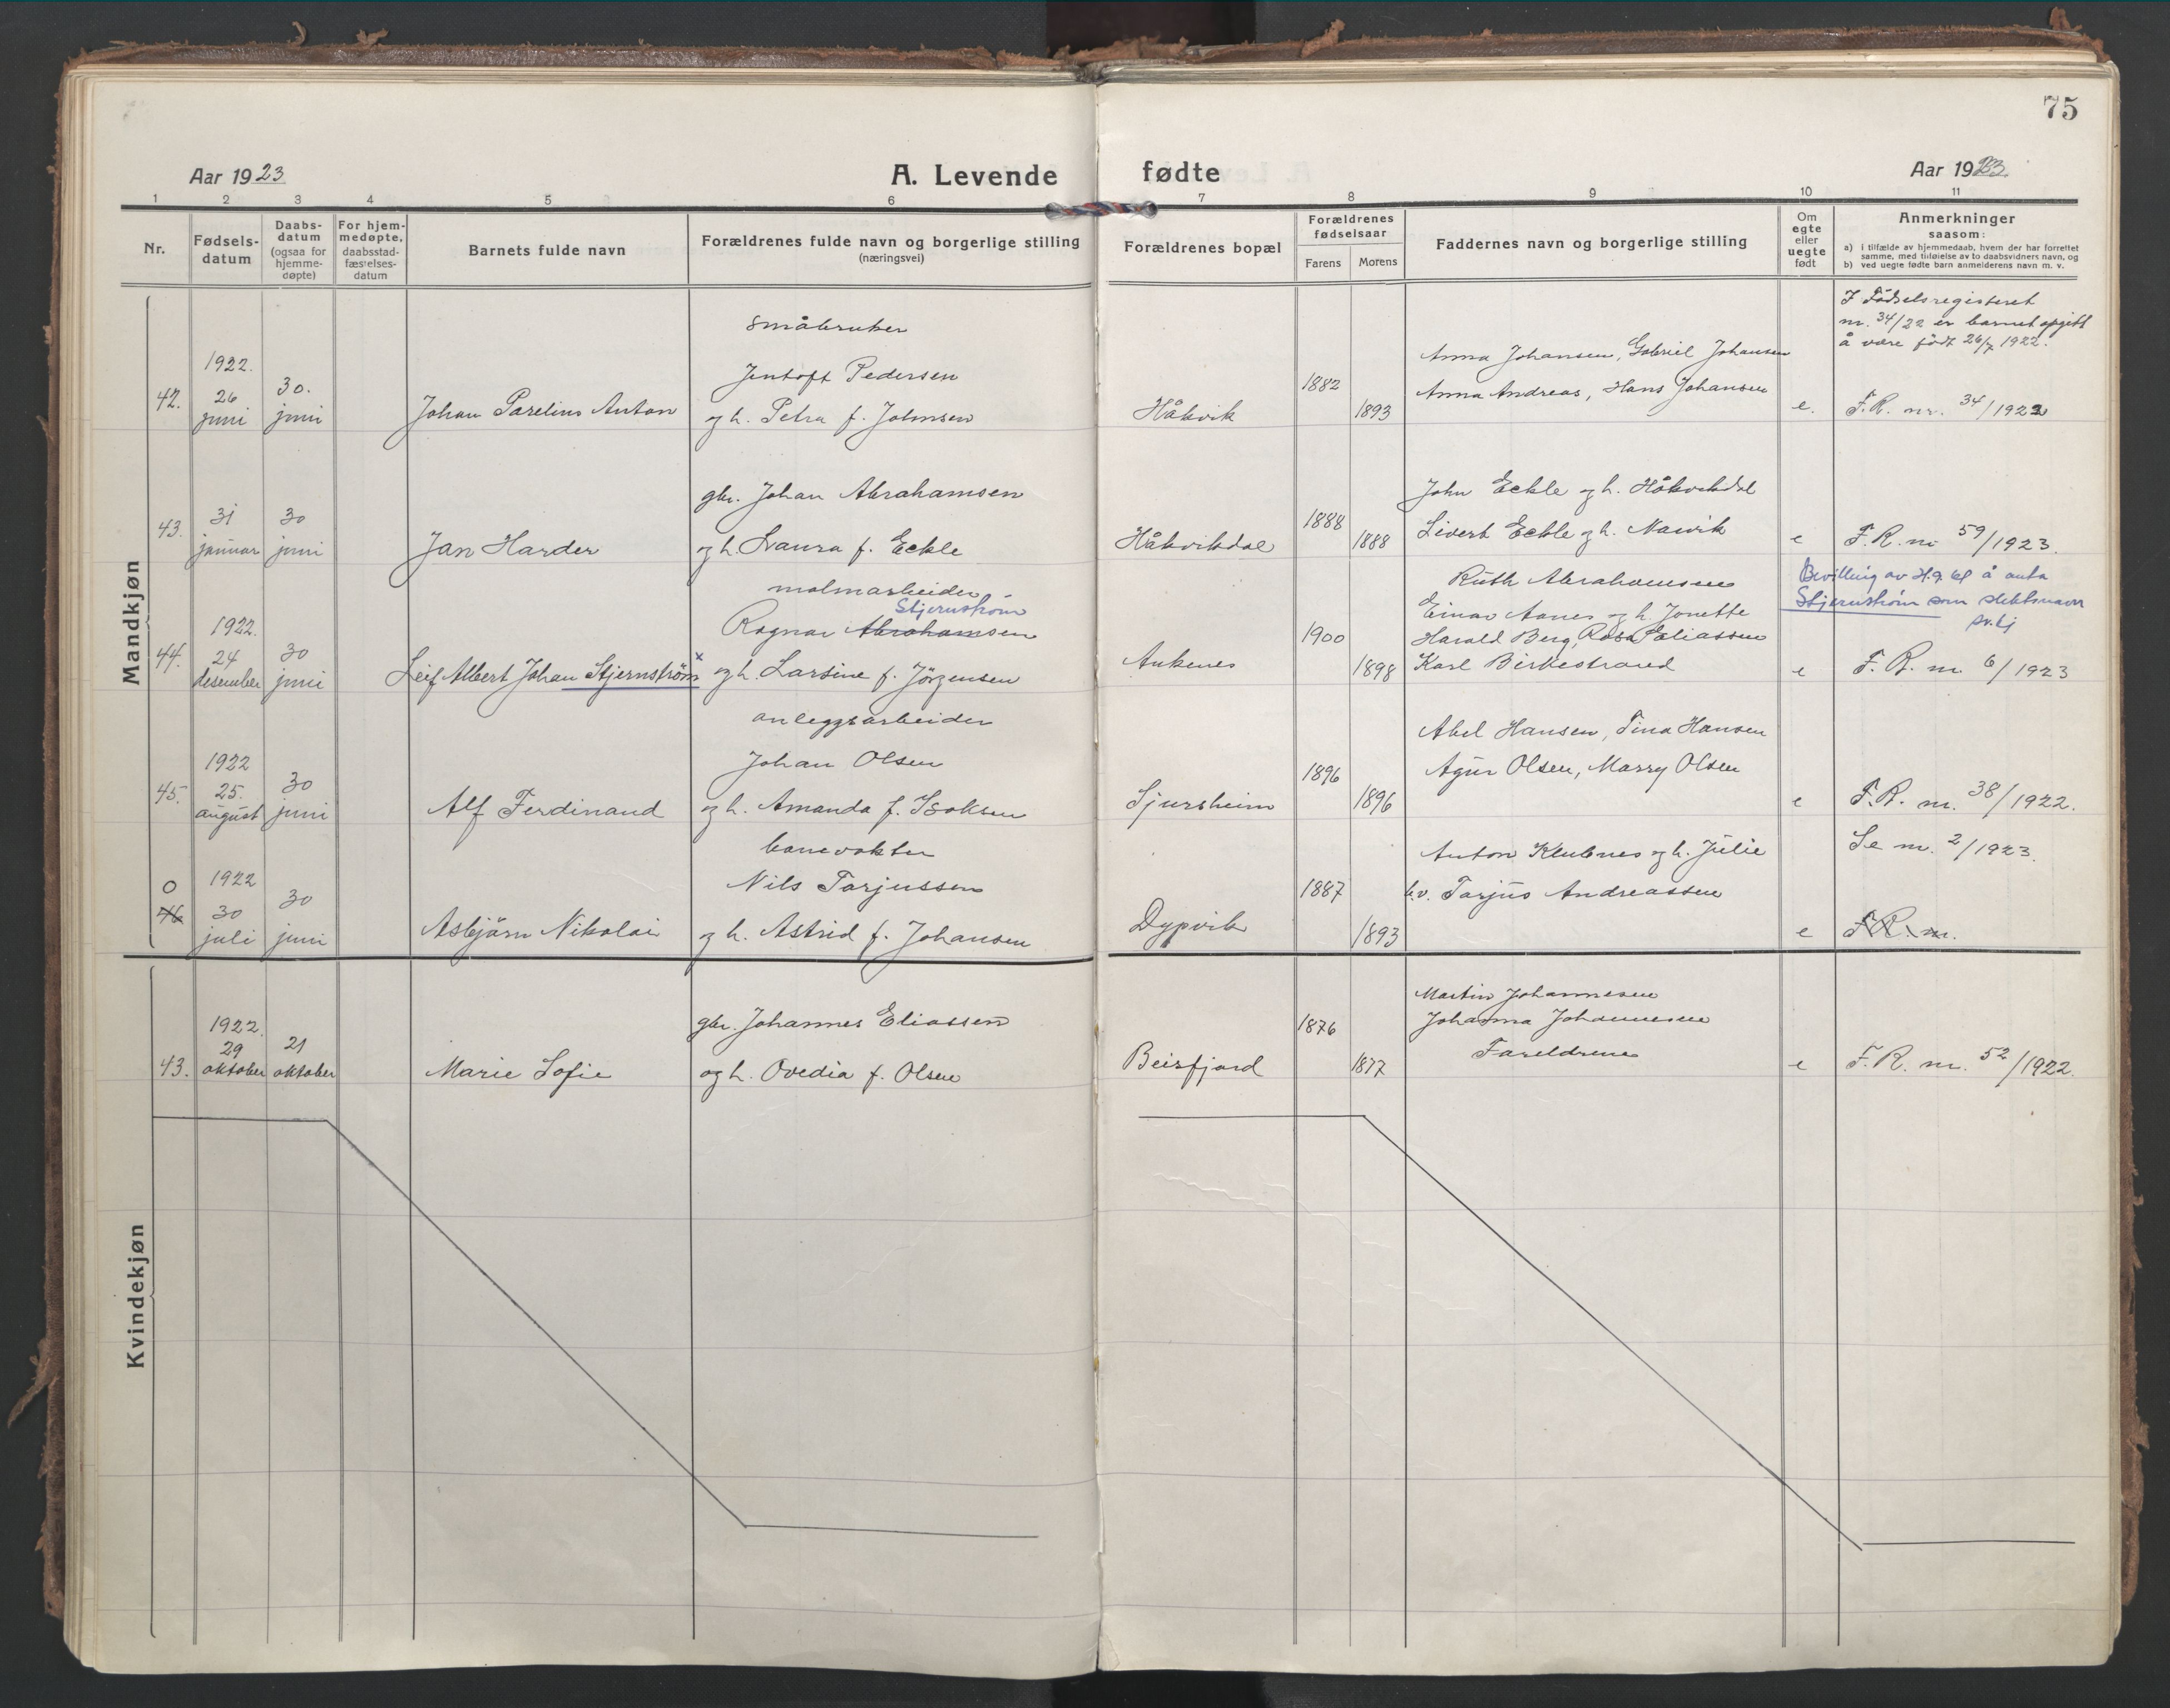 75
Aar 1923
A. Levende fødte
Aar 1923.
1 2 3 4 5 6 7 8 9 10 11
Nr.
Fødsels-
datum
Daabs-
datum
(ogsaa for
hjemme-
døpte)
For hjem-
medøpte,
daabsstad-
fæstelses-
datum
Barnets fulde navn
Forældrenes fulde navn og borgerlige stilling
(næringsvei)
Forældrenes bopæl
Forældrenes
fødselsaar
Farens Morens
Faddernes navn og borgerlige stilling
Om
egte
eller
uegte
født
Anmerkninger
saasom:
a) i tilfælde av hjemmedaab, hvem der har forrettet
samme, med tilføielse av to daabsvidners navn, og
b) ved uegte fødte barn anmelderens navn m. v.
Mandkjøn
42.
1922.
26
juni
30.
juni
Johan Parelius Anton
småbruker
Jentoft Pedersen
og h. Petra f. Johnsen
Håkvik
1882
1893
Anna Johansen, Gabriel Johansen
Anna Andreas, Hans Johansen
e.
I Födselsregisteret
nr. 34/22 er barnet opgitt
å være født 26/7 1922.
F.R. nr. 34/1922
43.
31
januar
30
juni
Jan Harder
gbr. Johan Abrahamsen
og h. Laura f. Eckle
Håkvikdal
1888
1888
John Eckle og h. Håkvikdal
Sivert Eckle og h. Narvik
e
F.R. nr 59/1923.
44.
1922.
24
desember
30
juni
Leif Albert Johan Stjernström x
malmarbeider
Stjernström
Ragnar Abrahamsen
og h. Larsine f. Jörgensen
Ankenes
1900
1898
Ruth Abrahamsen
Einar Aanes og h. Jonette
Harald Berg, Rosa Eliassen
Karl Birkestrand
e
Bevilling av H.g. til å anta
Stjernström som slektsnavn
F.R. nr. 6/1923
45.
1922
25.
august
30
juni
Alf Ferdinand
anleggsarbeider
Johan Olsen
og h. Amanda f. Isaksen
Sjursheim
1896
1896
Abel Hansen, Tina Hansen
Agur Olsen, Marry Olsen
e
F.R. nr. 38/1922.
0
46
1922
30
juli
30
juni
Asbjörn Nikolai
banevokter
Nils Tarjussen
og h. Astrid f. Johansen
Dypvik
1887
1893
Anton Klubnes og h. Julie
b.v. Tarjus Andreassen
e
Se nr. 2/1923.
F.R. nr.
Kvindekjøn
43.
1922.
29
oktober
21
oktober
Marie Sofie
gbr. Johannes Eliassen
og h. Ovedia f. Olsen
Beisfjord
1876
1877
Martin Johannesen
Johanna Johannesen
Foreldrene
e
F.R. nr. 52/1922.